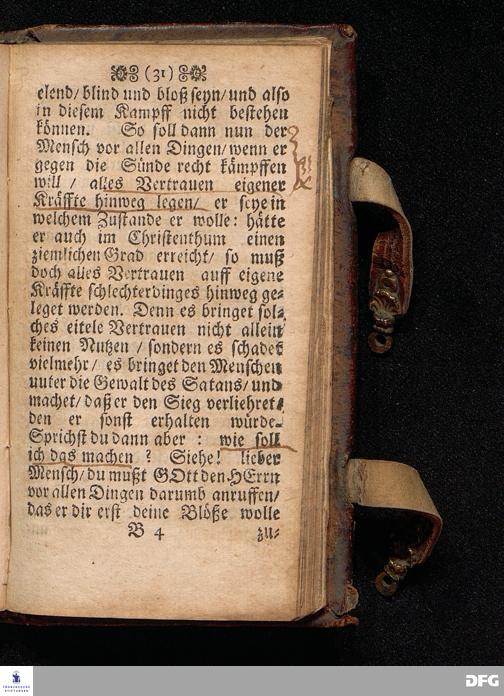 (31)
elend/ blind und bloß seyn/ und also
in diesem Kampff nicht bestehen
können. So soll dann nun der
Mensch vor allen Dingen/ wenn er
gegen die Sünde recht kämpffen
will / alles Vertrauen eigener
Kräffte hinweg legen/ er seye in
welchem Zustande er wolle: hätte
er auch im Christenthum einen
ziemlichen Grad erreicht/ so muß
doch alles Vertrauen auff eigene
Kräffte schlechterdinges hinweg ge-
leget werden. Denn es bringet sol-
ches eitele Vertrauen nicht allein
keinen Nutzen / sondern es schadet
vielmehr/ es bringet den Menschen
unter die Gewalt des Satans/ und
machet/ daß er den Sieg verliehret/
den er sonst erhalten würde.
Sprichst du dann aber : wie soll
ich das machen ? Siehe! lieber
Mensch/ du mußt GOtt den HErrn
vor allen Dingen darumb anruffen/
das er dir erst deine Blöße wolle
B 4 zu-
FRANCKESCHE
STIFTUNGEN
DFG